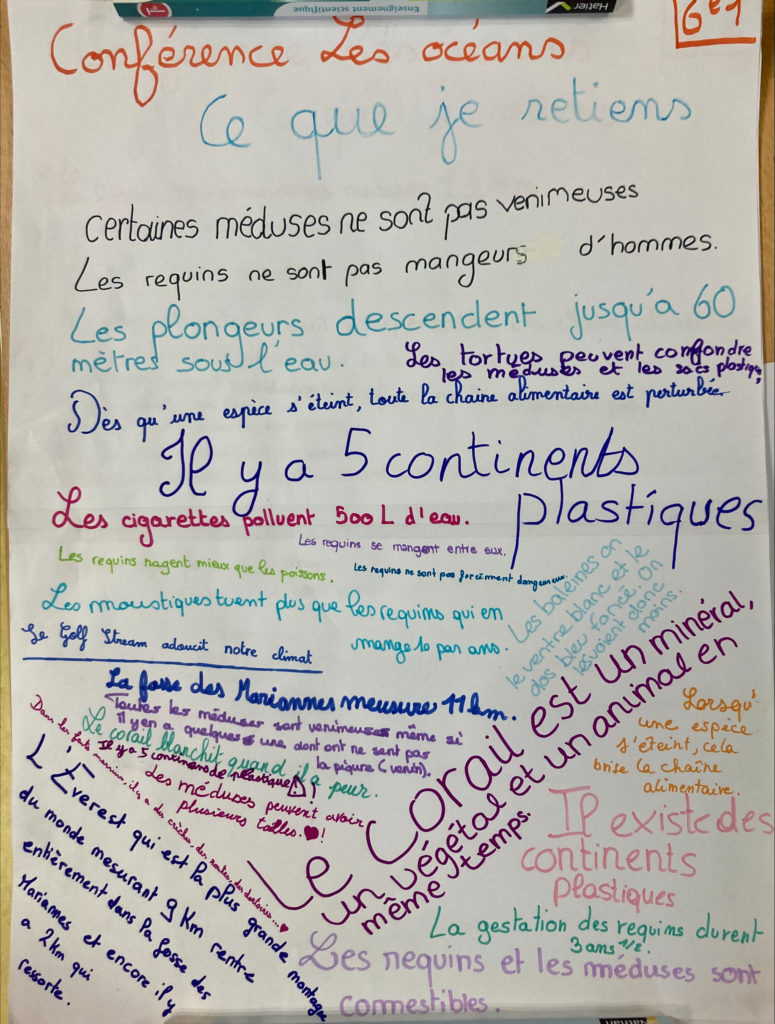 Enseignement scientifique
Hatier
1re
6e1
Conférence Les océans
Ce que je retiens
Certaines méduses ne sont pas venimeuses
Les requins ne sont pas mangeurs d'hommes.
Les plongeurs descendent jusqu'a 60
mètres sous l'eau.
Les tortues peuvent confondre
les méduses et les sacs plastique
Dès qu'une espèce s'éteint, toute la chaine alimentaire est perturbée
Il y a 5 continents
plastiques
Les cigarettes polluent 500 L d'eau.
Les requins se mangent entre eux.
Les requins nagent mieux que les poissons.
Les requins ne sont pas forcément dangereux.
Les moustiques tuent plus que les requins qui en
mange 10 par ans.
Les baleines on
le ventre blanc et le
dos bleu foncé. On
les voient donc
moins.
Le Golf Stream adoucit notre climat
La fosse des Mariannes meusure 11 km.
Toutes les méduses sont venimeuses même si
Il y en a quelques une dont ont ne sent pas
la piqure (venin).
Le corail blanchit quand il a peur.
Il y a 5 continents de plastique !
Les méduses peuvent avoir
plusieurs tailles. !
Dans les marins, il y a des
L'Everest qui est la plus grande montagne
du monde mesurant 9 Km rentre
entièrement dans la fosse des
Mariannes et encore il y
a 2 km qui
ressorte.
Le Corail est un minéral,
un végétal et un animal en
même temps.
Lorsqu'
une espèce
s'éteint, cela
brise la chaîne
alimentaire.
Il existe des
continents
plastiques
La gestation des requins durent
3 ans 1/2.
Les requins et les méduses sont
commestibles.